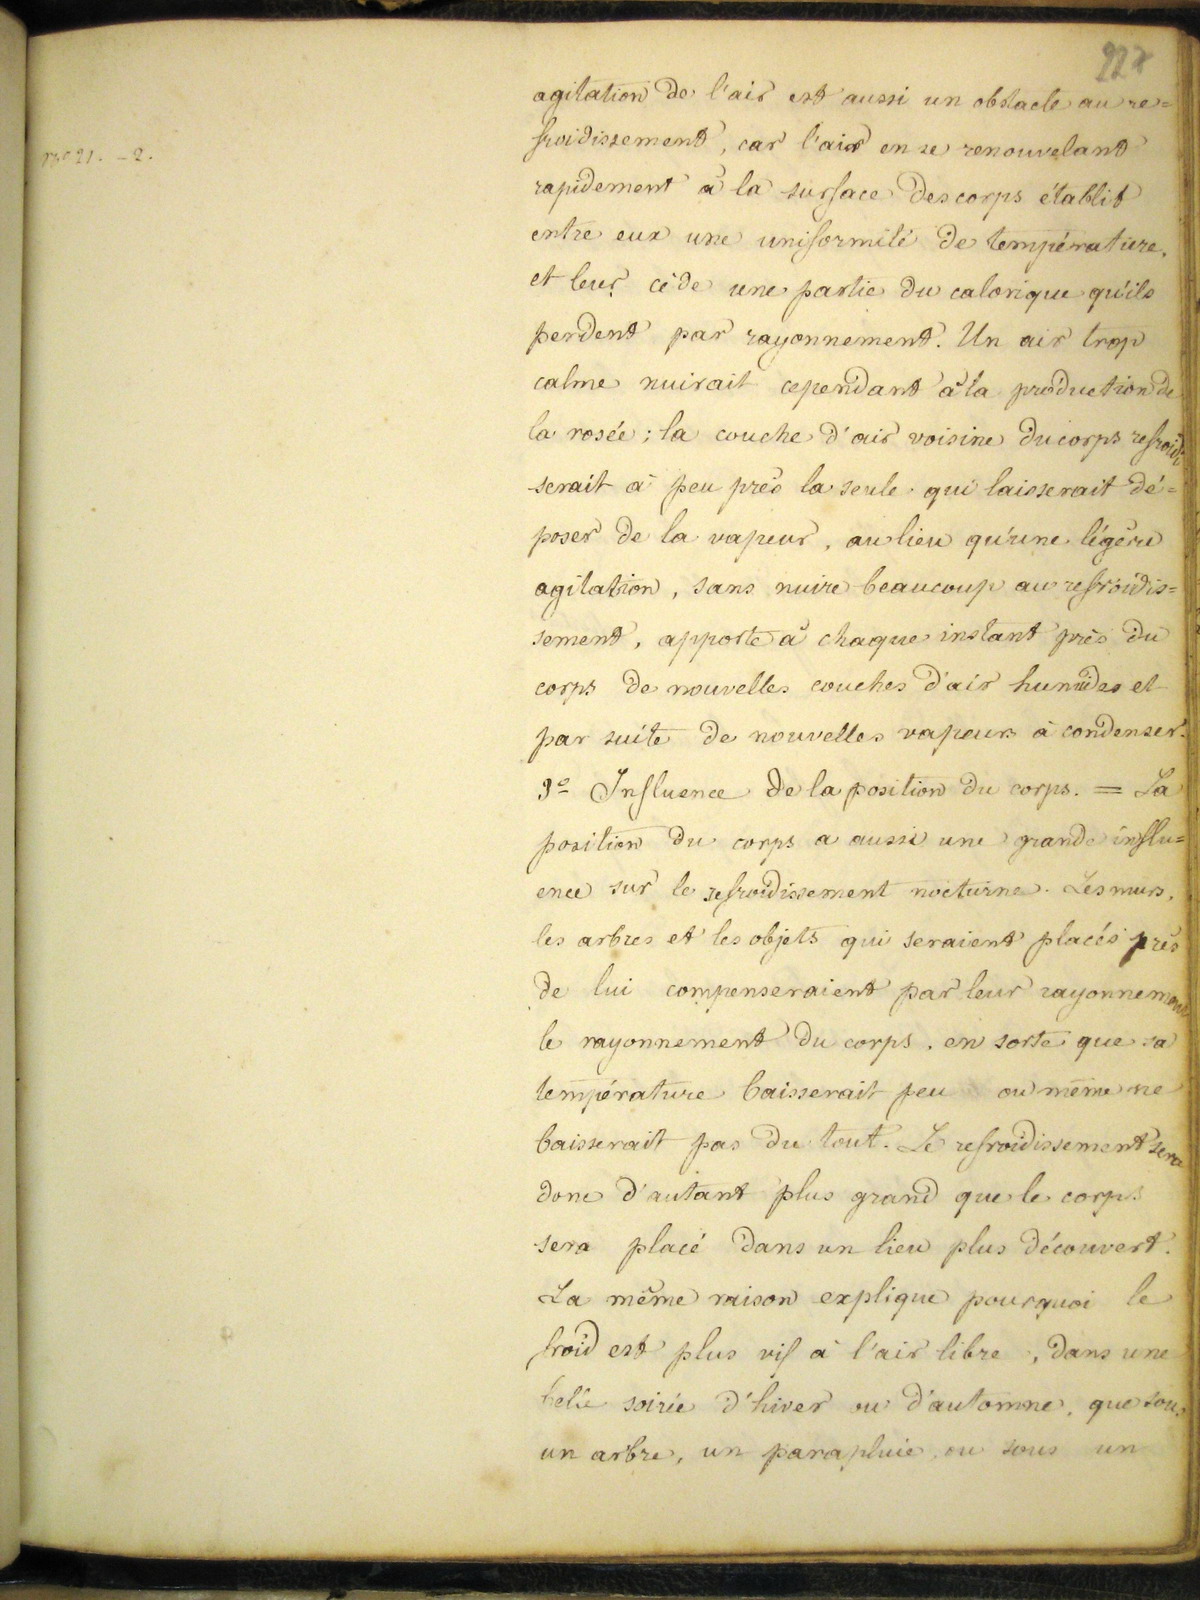 227
nº 21. - 2.
agitation de l'air est aussi un obstacle au re=
froidissement, car l'air en se renouvelant
rapidement à la surface des corps établit
entre eux une uniformité de température,
et leur cède une partie du calorique qu'ils
perdent par rayonnement. Un air trop
calme nuirait cependant à la production de
la rosée ; la couche d'air voisine du corps refroidi
serait à peu près la seule qui laisserait dé=
poser de la vapeur, au lieu qu'une légère
agitation, sans nuire beaucoup au refroidis=
sement, apporte à chaque instant près du
corps de nouvelles couches d'air humides et
par suite de nouvelles vapeurs à condenser.
3º Influence de la position du corps. = La
position du corps a aussi une grande influ=
ence sur le refroidissement nocturne. Les murs,
les arbres et les objets qui seraient placés près
de lui compenseraient par leur rayonnement
le rayonnement du corps, en sorte que sa
température baisserait peu ou même ne
baisserait pas du tout. Le refroidissement sera
donc d'autant plus grand que le corps
sera placé dans un lieu plus découvert.
La même raison explique pourquoi le
froid est plus vif à l'air libre, dans une
belle soirée d'hiver ou d'automne, que sous
un arbre, un parapluie, ou sous un